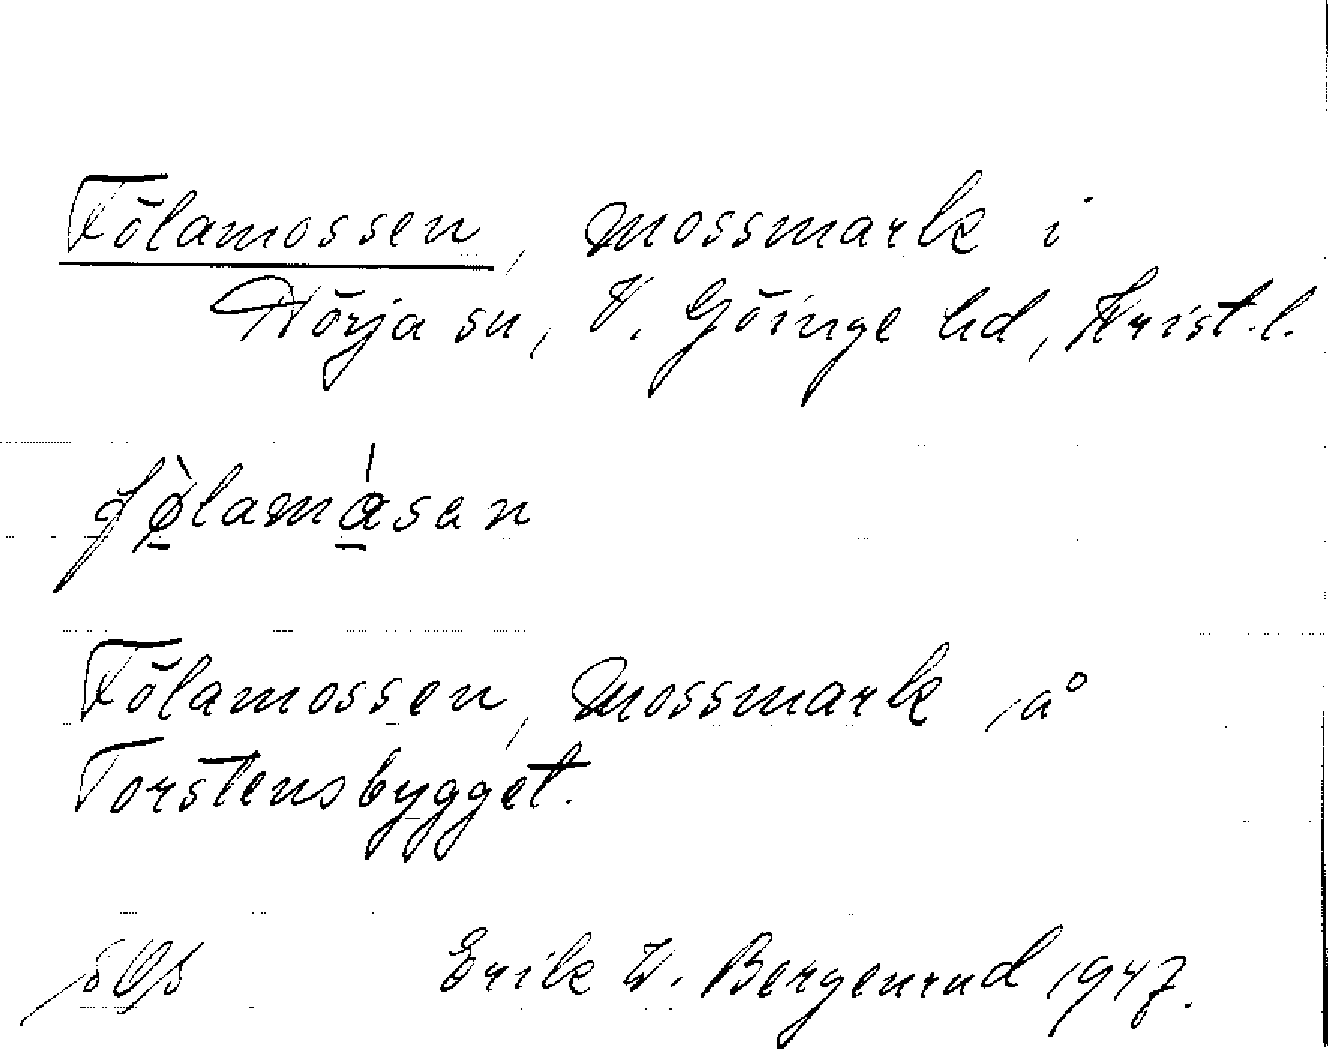 Fölamossen, mossmark i
Nörja sn, V. Göinge hd, Krist. l.
fø̀lamásan
Fölamossen, mossmark på
Torstensbygget.
Erik W. Bergenrud 1947.